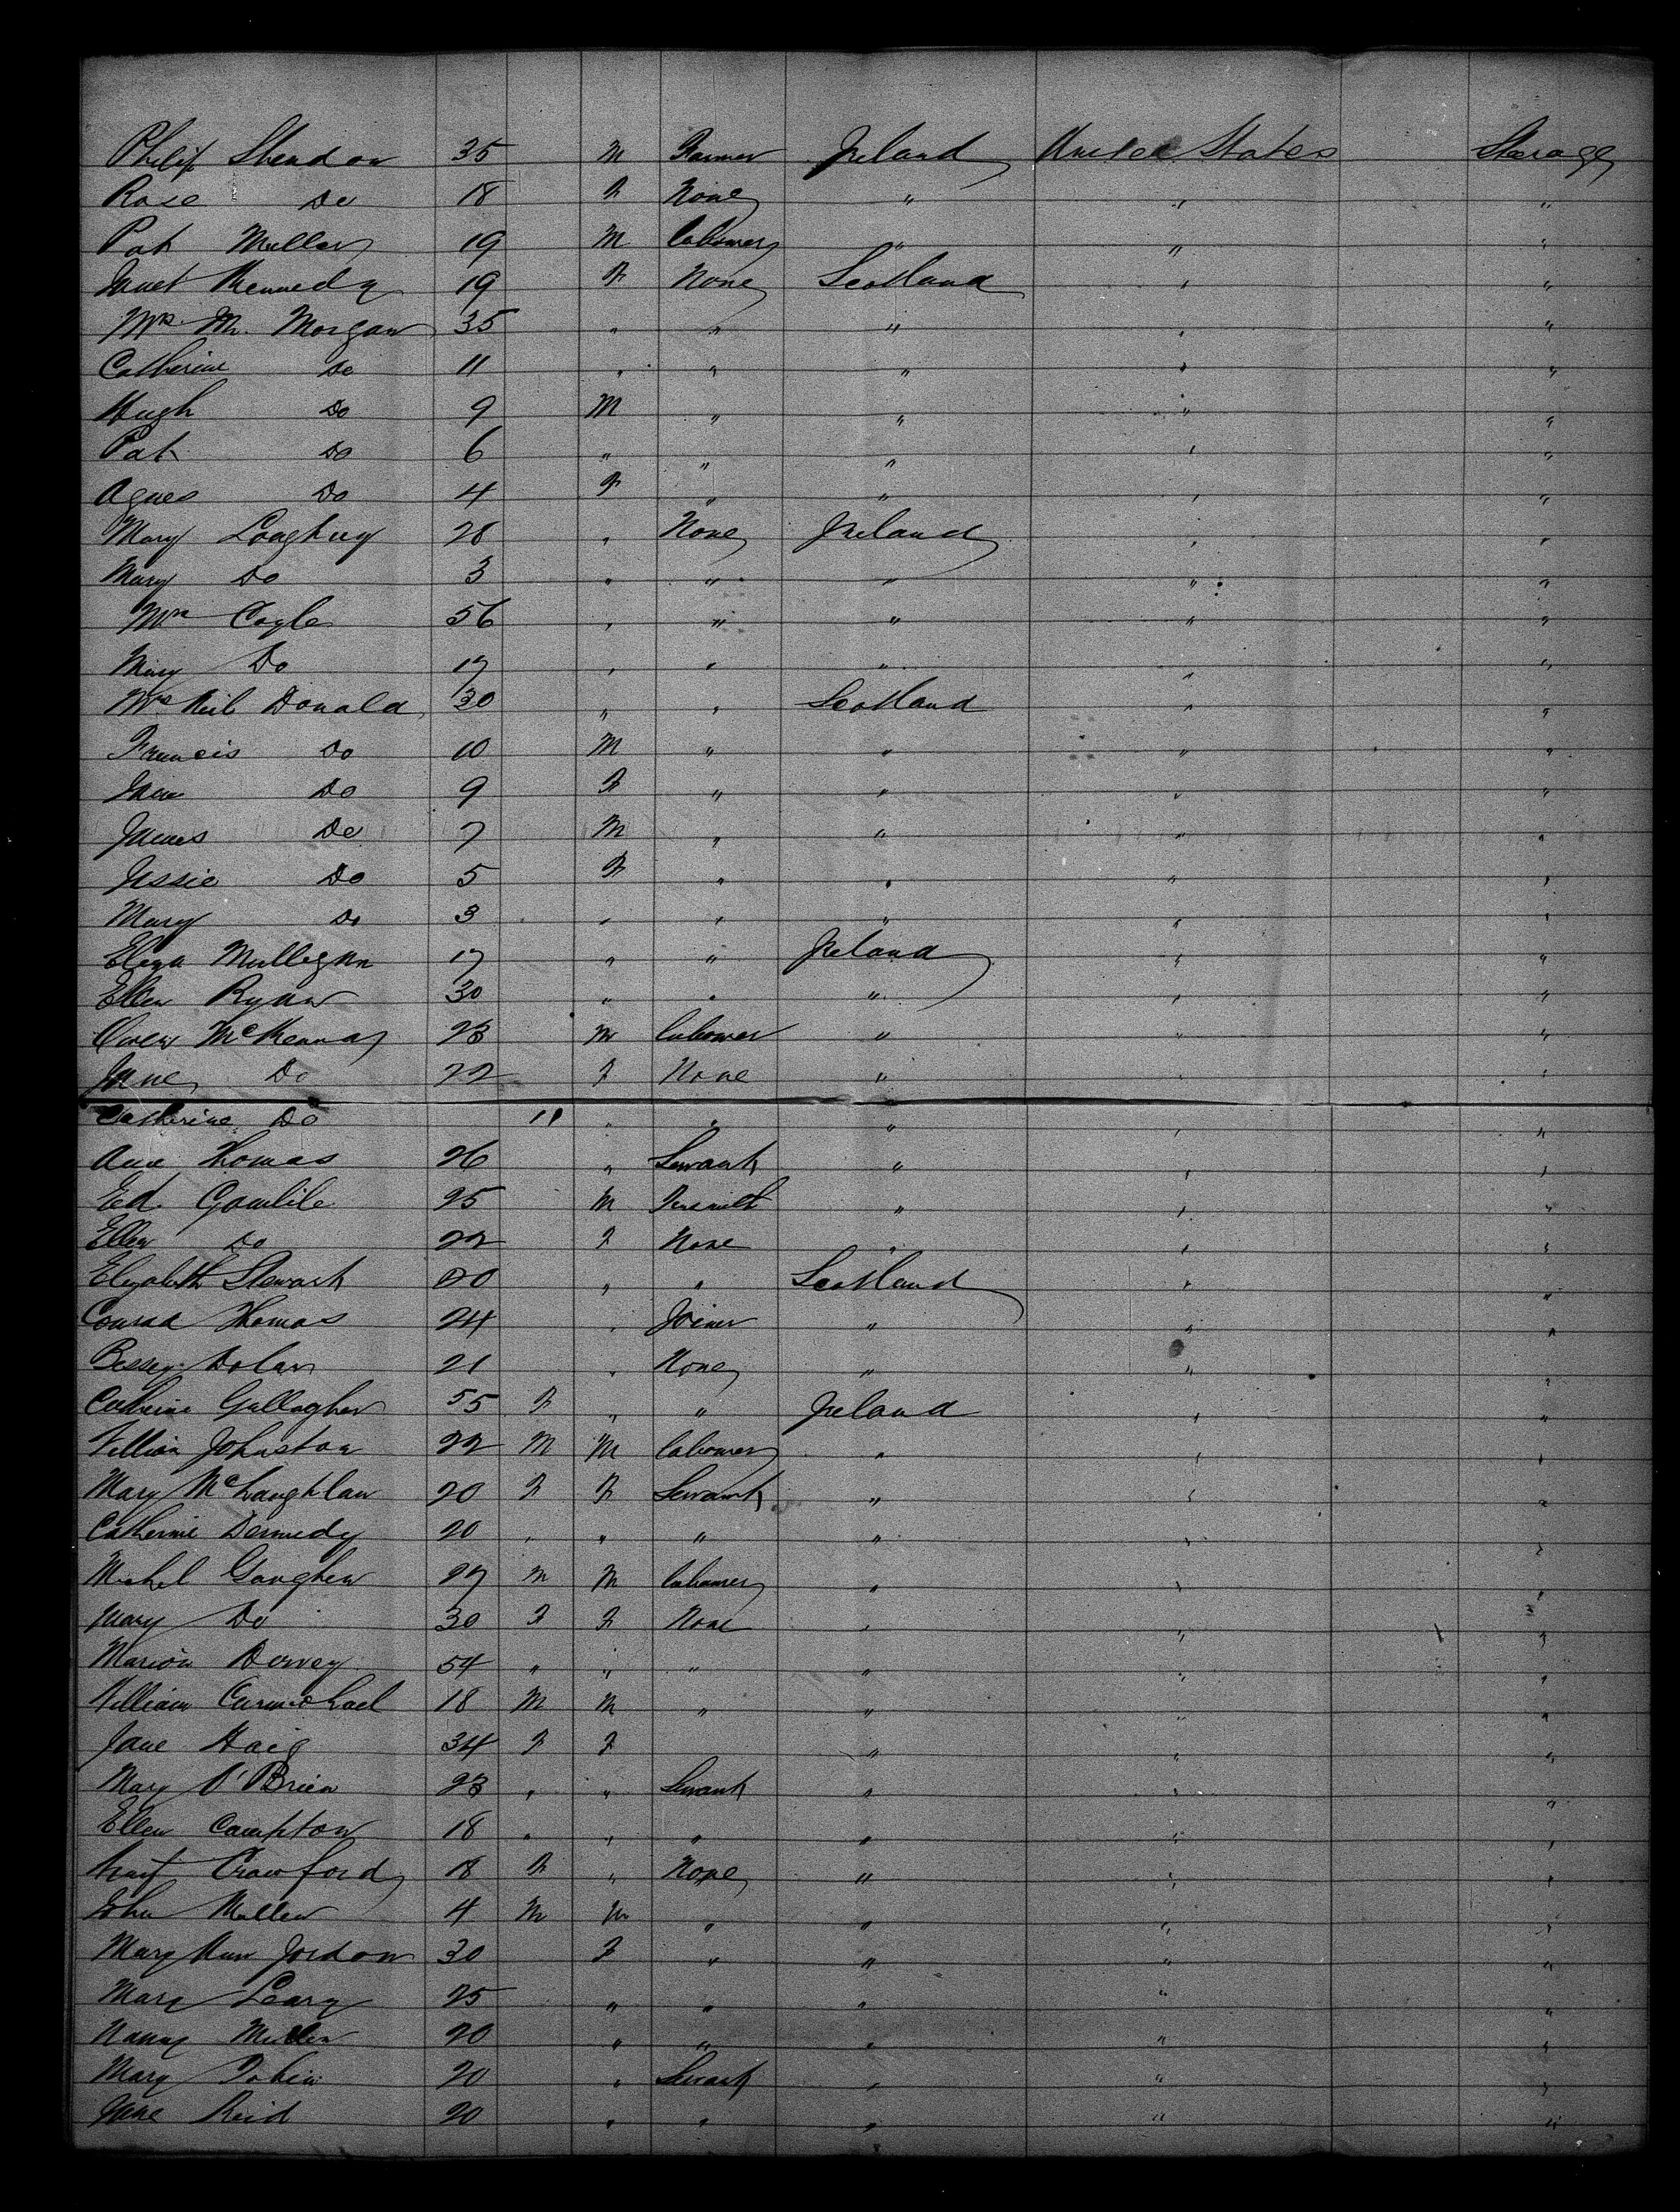 Philip Sheridan 35 M Farmer Ireland United States Steerage
Rose Do 18 F None " " "
Pat Mullen 19 M Labourer " " "
Janet Kennedy 19 F None Scotland " "
Mrs M. Morgan 35 " " " " "
Catherine Do 11 " " " " "
Hugh Do 9 M " " " "
Pat Do 6 " " " " "
Agnes Do 4 F " " " "
Mary Loughrey 28 " None Ireland " "
Mary Do 3 " " " " "
Mrs Cogle 56 " " " " "
Mary Do 17 " " " " "
Mrs Neil Donald 30 " " Scotland " "
Francis Do 10 M " " " "
Jane Do 9 F " " " "
James Do 7 M " " " "
Jessie Do 5 F " " " "
Mary Do 3 " " " " "
Eliza Mulligan 17 " " Ireland " "
Ellen Ryan 30 " " " " "
Owen McKenna 23 M Labourer " " "
Jane Do 22 F None " " "
Catherine Do 11 " " " " "
Ann Thomas 26 " Servant " " "
Ed. 25 M Tinsmith " " "
Ellen Do 22 F None " " "
Elizabeth Stewart 20 " " Scotland " "
Conrad Thomas 24 " Joiner " " "
Bessey Dolan 21 " None " " "
Catherine Gallagher 55 F " " Ireland " "
William Johnston 22 M M Labourer " " "
Mary McLaughlan 20 F F Servant " " "
Catherine Dennedy 20 " " " " " "
Michel Gaughen 27 M M Labourer " " "
Mary Do 30 F F None " " "
Marion Dovey 54 " " " " " "
William Carmichael 18 M M " " " "
Jane Haig 34 F F " " "
Mary O'Brien 23 " " Servant " " "
Ellen Campton 18 " " " " " "
Crawford 18 F " None " " "
John Mullen 4 M M " " " "
Mary Ann Jordon 30 F " " " "
Mary Leary 25 " " " " "
Nanny Mullen 20 " " " " "
Mary Tobin 20 " Servant " " "
Jane Reid 20 " " " " "